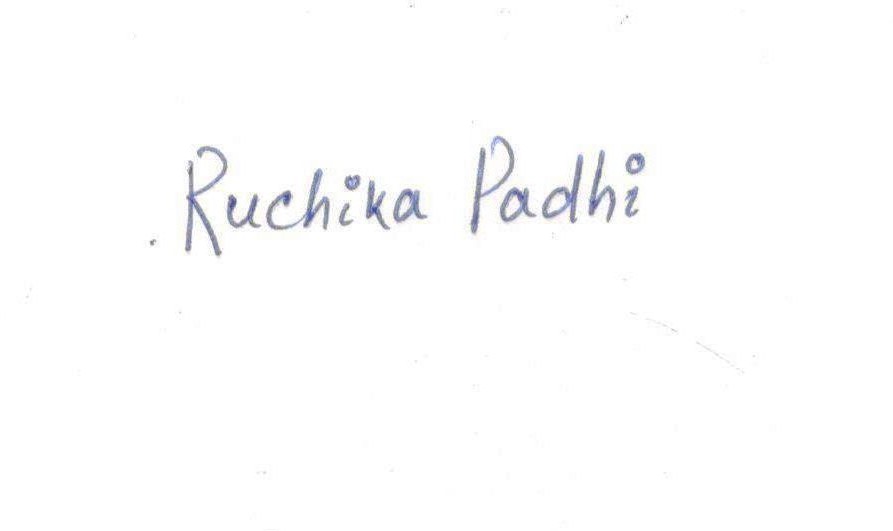 Ruchika Padhi